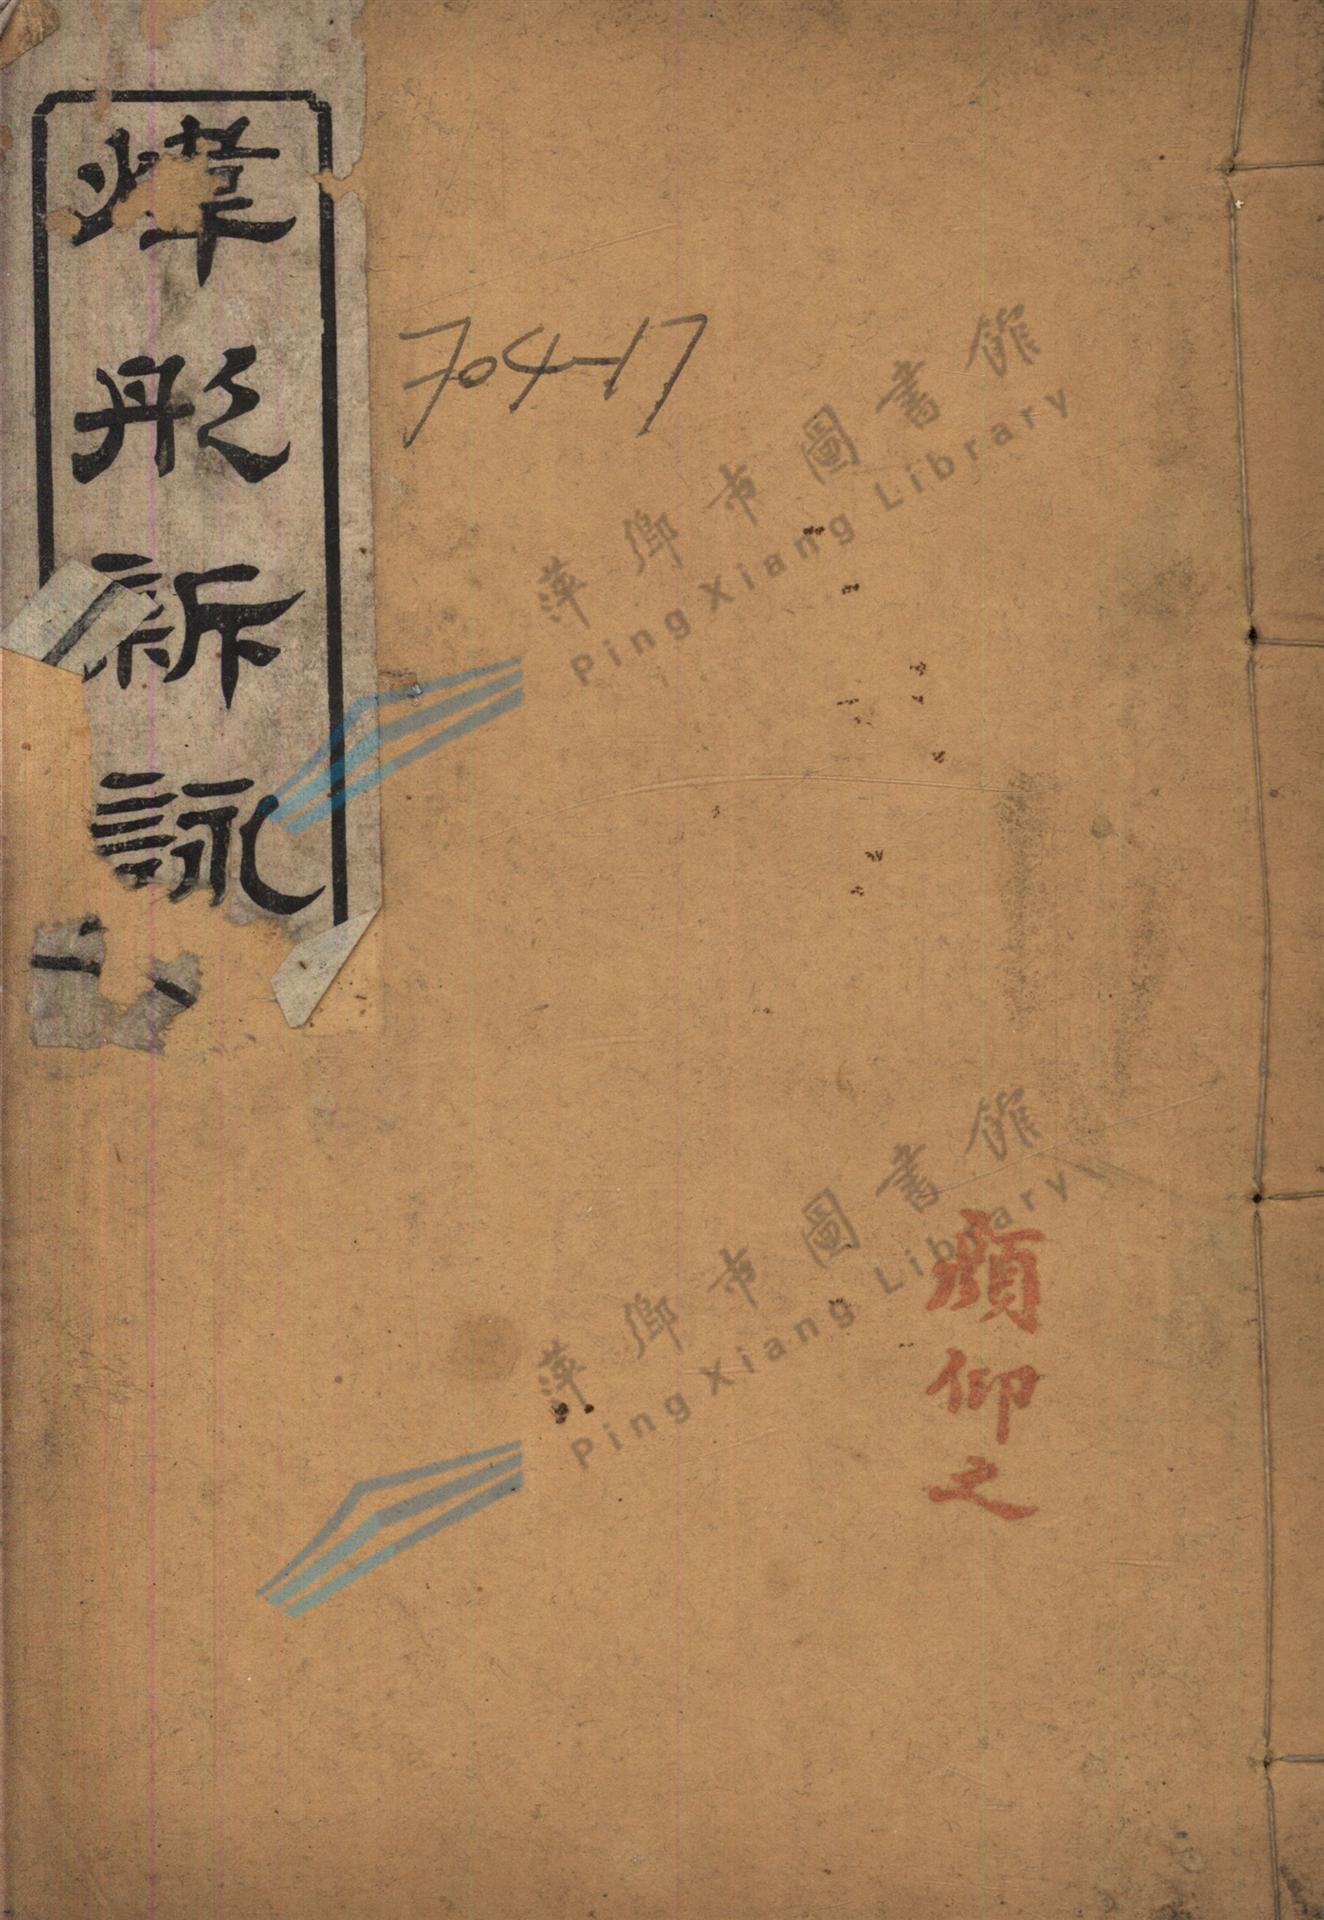 煒彤新詠
704-17
萍鄉市圖書館
PingXiang Library
萍鄉市圖書館
PingXiang Library
顏仰之